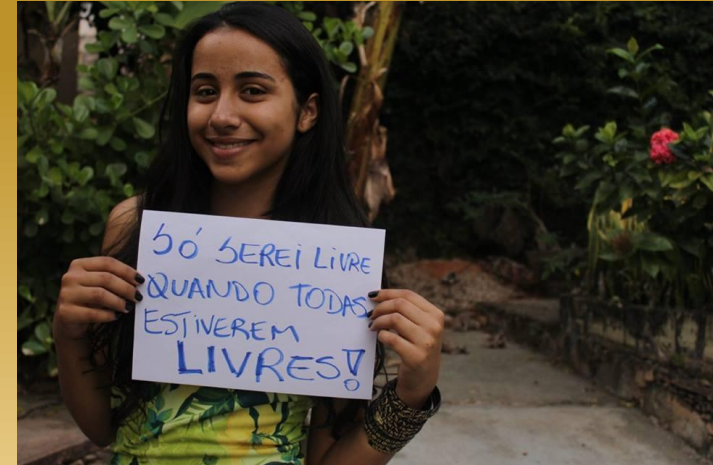 SÓ SEREI LIVRE
QUANDO TODAS
ESTIVEREM
LIVRES!